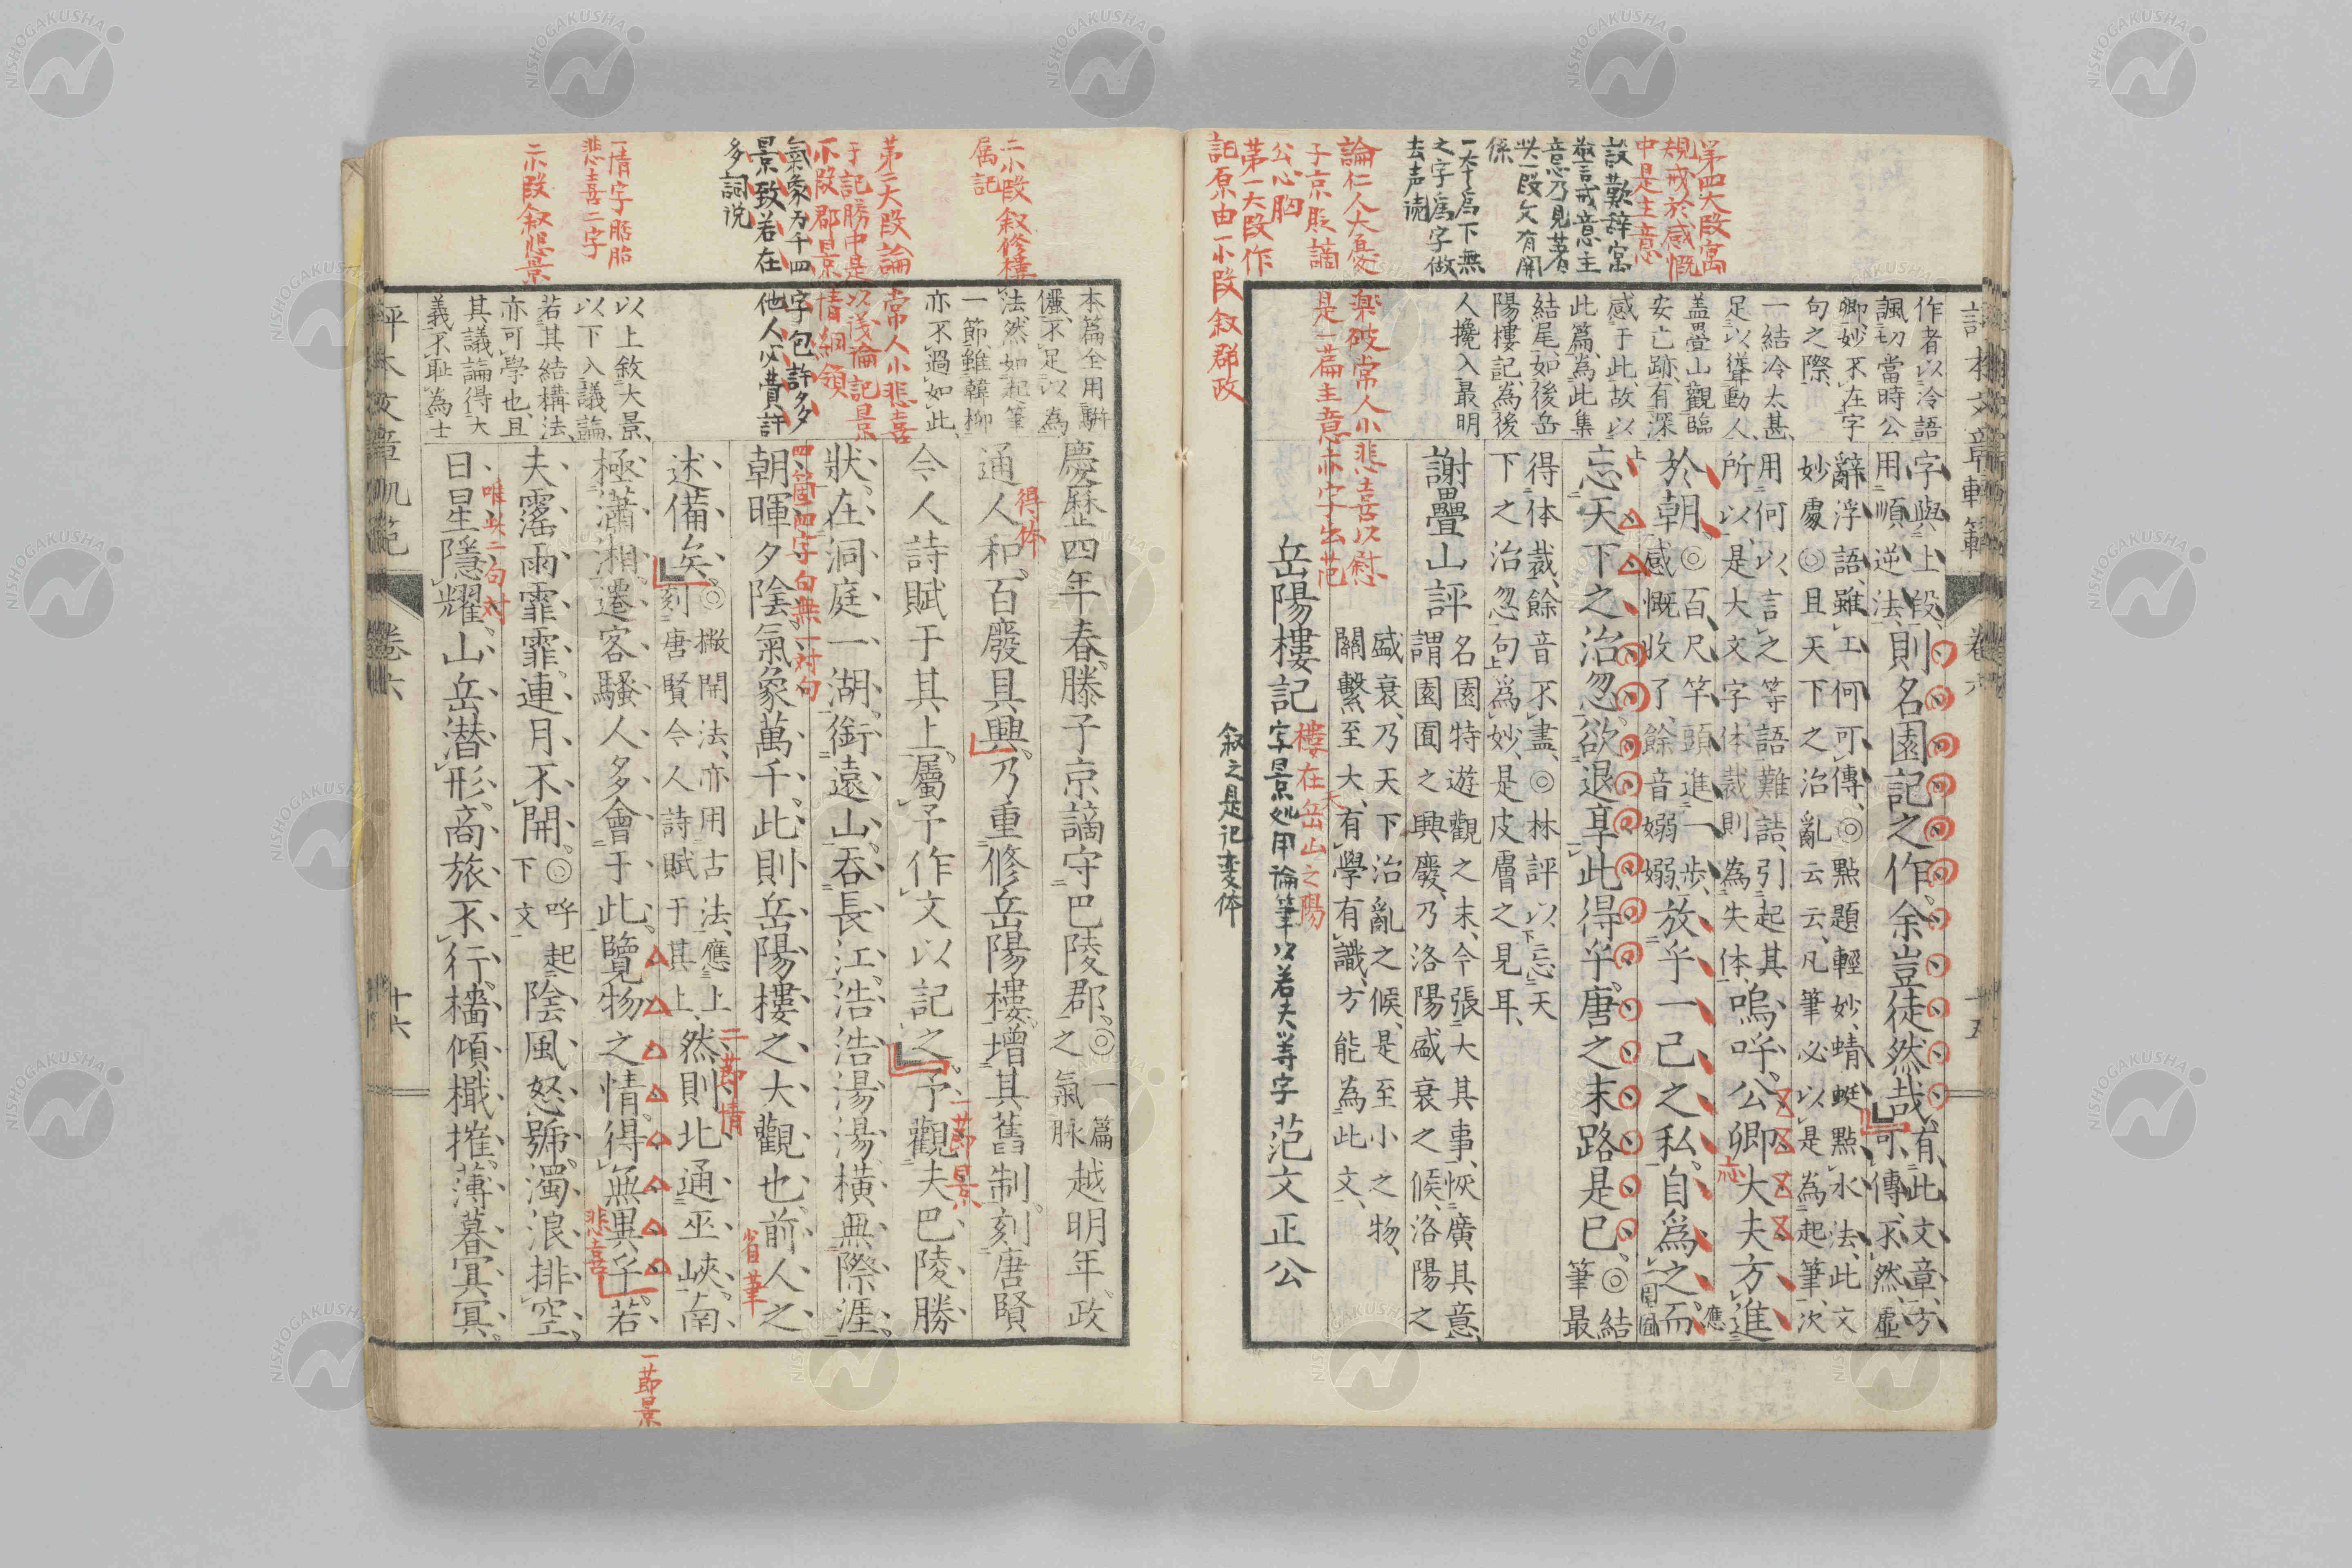 評本文章軌範
卷六
十五
第四大段寓
規戒於感慨
中是主意
設歎辞寓
警戒意主
意乃見著
此一段文有関
係
一本爲下無
之字爲字做
去声読
論仁人大憂楽破常人小悲喜以慰
子京貶謫是一篇主意赤字出范
公心胸
第一大段作
記原由一小段叙郡政
作者以冷語
諷切當時公
卿妙不在字
句之際
一結冷太甚
足以聳動人
蓋疊山觀臨
安亡跡有深
感于此故以
此篇為此集
結尾如後岳
陽樓記為後
人攙入最明
字與上段
用順逆法則名園記之作余豈徒然哉有此文章方
可傳不然虛
辭浮語雖工何可傳◎點題輕妙蜻蜓點水法此文
妙處◎且天下之治亂云云凡筆必以是為起筆次
用何以言之等語難詰引起其
所以是大文字体裁則為失体嗚呼公卿大夫方進
應
於朝◎百尺竿頭進一步
感慨收了餘音嫋嫋放乎一己之私自爲之而
忘天下之治忽欲退享此得乎唐之末路是已◎結
筆最
得体裁餘音不盡◎林評以忘天
下之治忽句爲妙是皮膚之見耳
謝疊山評名園特遊觀之末今張大其事恢廣其意
謂園囿之興廢乃洛陽盛衰之候洛陽之
盛衰乃天下治亂之候是至小之物
關繫至大有學有識方能為此文
岳陽樓記 范文正公
樓在岳山之陽
字景処用論筆以若夫等字
叙之是記変体
二小段叙修樓
属記
第二大段論常人小悲喜
于記勝中是以淺論記景
小段郡景情綱領
氣象万千四字包許多
景致若在他人必費許
多詞説
一情字胚胎
悲喜二字
二小段叙悲景
本篇全用駢
儷不足以為
法然如起筆
一節雖韓柳
亦不過如此
以上敘大景
以下入議論
若其結構法
亦可學也且
其議論得大
義不耻為士
慶歷四年春滕子京謫守巴陵郡◎一篇
之氣脉越明年政
得体
通人和百廢具興乃重修岳陽樓增其舊制刻唐賢
今人詩賦于其上屬予作文以記之予觀夫巴陵勝
一節景
狀在洞庭一湖銜遠山吞長江浩浩湯湯橫無際涯
四箇四字句無一対句
朝暉夕陰氣象萬千此則岳陽樓之大觀也前人之
省筆
述備矣◎撇開法亦用古法應上
刻唐賢今人詩賦于其上然則北通巫峽南
二節情
極瀟湘遷客騷人多會于此覽物之情得無異乎若
悲喜
夫霪雨霏霏連月不開◎呼起
下文陰風怒號濁浪排空
唯此二句対
日星隱耀山岳潜形商旅不行檣傾檝摧薄暮冥冥
一節景
評本文章軌範
卷六
十六